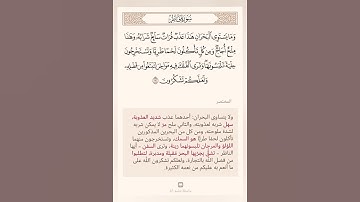 سورة فاطر
وَمَا يَسْتَوِى ٱلْبَحْرَانِ هَٰذَا عَذْبٌ فُرَاتٌ سَآئِغٌ شَرَابُهُۥ وَهَٰذَا
مِلْحٌ أُجَاجٌ وَمِن كُلٍّ تَأْكُلُونَ لَحْمًا طَرِيًّا وَتَسْتَخْرِجُونَ
حِلْيَةً تَلْبَسُونَهَا وَتَرَى ٱلْفُلْكَ فِيهِ مَوَاخِرَ لِتَبْتَغُوا۟ مِن فَضْلِهِۦ
وَلَعَلَّكُمْ تَشْكُرُونَ ١٢
المختصر
ولا يتساوى البحران: أحدهما عذب شديد العذوبة،
سهل شربه لعذوبته، والثاني ملح مر لا يمكن شربه
لشدة ملوحته، ومن كل من البحرين المذكورين
تأكلون لحمًا طريًا هو السمك، وتستخرجون منهما
اللؤلؤ والمرجان تلبسونهما زينة، وترى السفن - أيها
الناظر - تشق بجريها البحر مقبلة ومدبرة، لتطلبوا
من فضل الله بالتجارة، ولعلكم تشكرون الله على
ما أنعم به عليكم من نعمه الكثيرة.